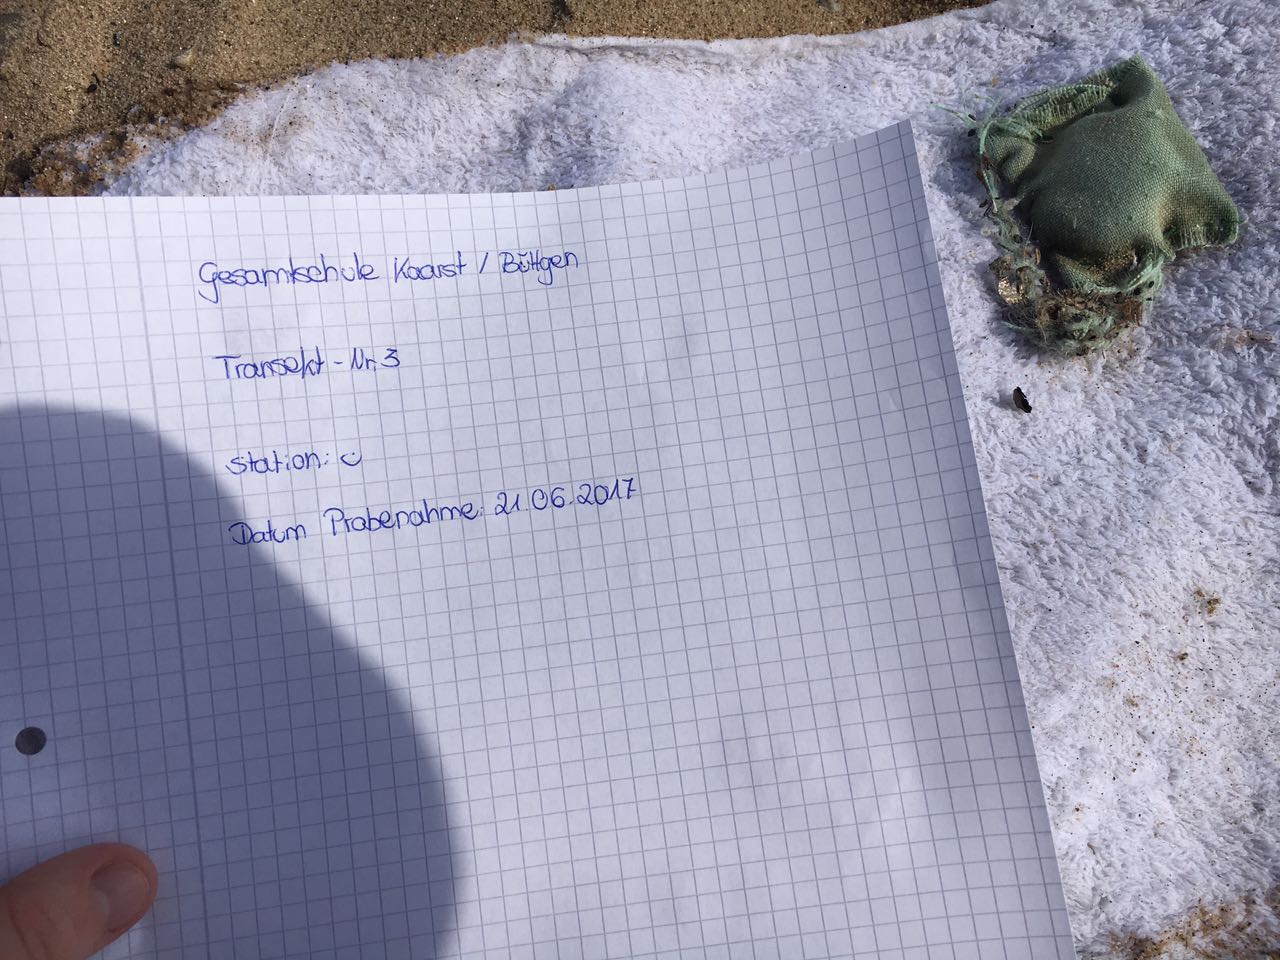 Gesamtschule Kaarst / Büttgen
Transekt - Nr. 3
Station:
Datum Probenahme: 21.06.2017